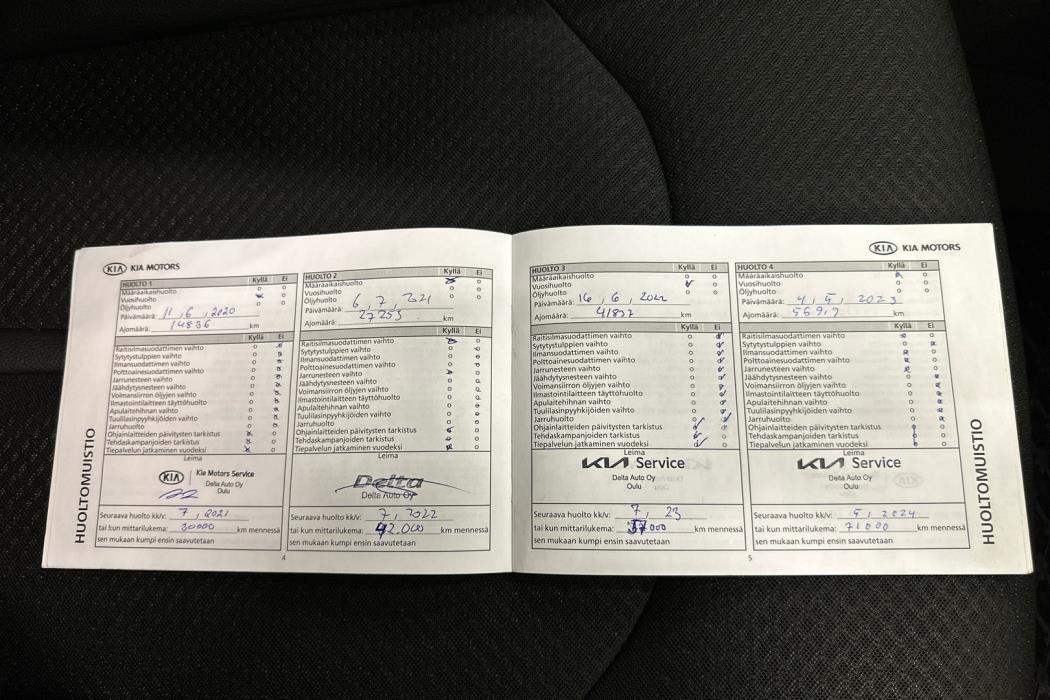 KIA KIA MOTORS
HUOLTO 1 Kyllä Ei
Määräaikaishuolto
Vuosihuolto
Öljyhuolto
Päivämäärä: 11, 6, 2020
Ajomäärä: 14836 km
Kyllä Ei
Raitisilmasuodattimen vaihto
Sytytystulppien vaihto
Ilmansuodattimen vaihto
Polttoainesuodattimen vaihto
Jarrunesteen vaihto
Jäähdytysnesteen vaihto
Voimansiirron öljyjen vaihto
Ilmastointilaitteen täyttöhuolto
Apulaitehihnan vaihto
Tuulilasinpyyhkijöiden vaihto
Jarruhuolto
Ohjainlaitteiden päivitysten tarkistus
Tehdaskampanjoiden tarkistus
Tiepalvelun jatkaminen vuodeksi
Leima
KIA Kia Motors Service
Delta Auto Oy
Oulu
Seuraava huolto kk/v: 7, 2021
tai kun mittarilukema: 30000 km mennessä
sen mukaan kumpi ensin saavutetaan
HUOLTO 2 Kyllä Ei
Määräaikaishuolto
Vuosihuolto
Öljyhuolto
Päivämäärä: 6, 7, 2021
Ajomäärä: 27253 km
Kyllä Ei
Raitisilmasuodattimen vaihto
Sytytystulppien vaihto
Ilmansuodattimen vaihto
Polttoainesuodattimen vaihto
Jarrunesteen vaihto
Jäähdytysnesteen vaihto
Voimansiirron öljyjen vaihto
Ilmastointilaitteen täyttöhuolto
Apulaitehihnan vaihto
Tuulilasinpyyhkijöiden vaihto
Jarruhuolto
Ohjainlaitteiden päivitysten tarkistus
Tehdaskampanjoiden tarkistus
Tiepalvelun jatkaminen vuodeksi
Leima
Delta
Delta Auto Oy
Seuraava huolto kk/v: 7, 2022
tai kun mittarilukema: 42.000 km mennessä
sen mukaan kumpi ensin saavutetaan
HUOLTOMUISTIO
4
KIA KIA MOTORS
HUOLTO 3 Kyllä Ei
Määräaikaishuolto
Vuosihuolto
Öljyhuolto
Päivämäärä: 16, 6, 2022
Ajomäärä: 41837 km
Kyllä Ei
Raitisilmasuodattimen vaihto
Sytytystulppien vaihto
Ilmansuodattimen vaihto
Polttoainesuodattimen vaihto
Jarrunesteen vaihto
Jäähdytysnesteen vaihto
Voimansiirron öljyjen vaihto
Ilmastointilaitteen täyttöhuolto
Apulaitehihnan vaihto
Tuulilasinpyyhkijöiden vaihto
Jarruhuolto
Ohjainlaitteiden päivitysten tarkistus
Tehdaskampanjoiden tarkistus
Tiepalvelun jatkaminen vuodeksi
Leima
KIA Service
Delta Auto Oy
Oulu
Seuraava huolto kk/v: 7, 23
tai kun mittarilukema: km mennessä
sen mukaan kumpi ensin saavutetaan
HUOLTO 4 Kyllä Ei
Määräaikaishuolto
Vuosihuolto
Öljyhuolto
Päivämäärä: 4, 5, 2023
Ajomäärä: km
Kyllä Ei
Raitisilmasuodattimen vaihto
Sytytystulppien vaihto
Ilmansuodattimen vaihto
Polttoainesuodattimen vaihto
Jarrunesteen vaihto
Jäähdytysnesteen vaihto
Voimansiirron öljyjen vaihto
Ilmastointilaitteen täyttöhuolto
Apulaitehihnan vaihto
Tuulilasinpyyhkijöiden vaihto
Jarruhuolto
Ohjainlaitteiden päivitysten tarkistus
Tehdaskampanjoiden tarkistus
Tiepalvelun jatkaminen vuodeksi
Leima
KIA Service
Delta Auto Oy
Oulu
Seuraava huolto kk/v: 5, 2024
tai kun mittarilukema: 71000 km mennessä
sen mukaan kumpi ensin saavutetaan
HUOLTOMUISTIO
5